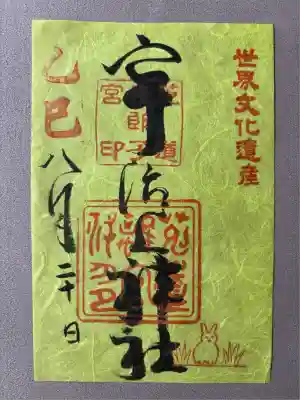 世界文化遺産
宇治上神社
菟道
郎子
宮印
乙巳
八月二十日